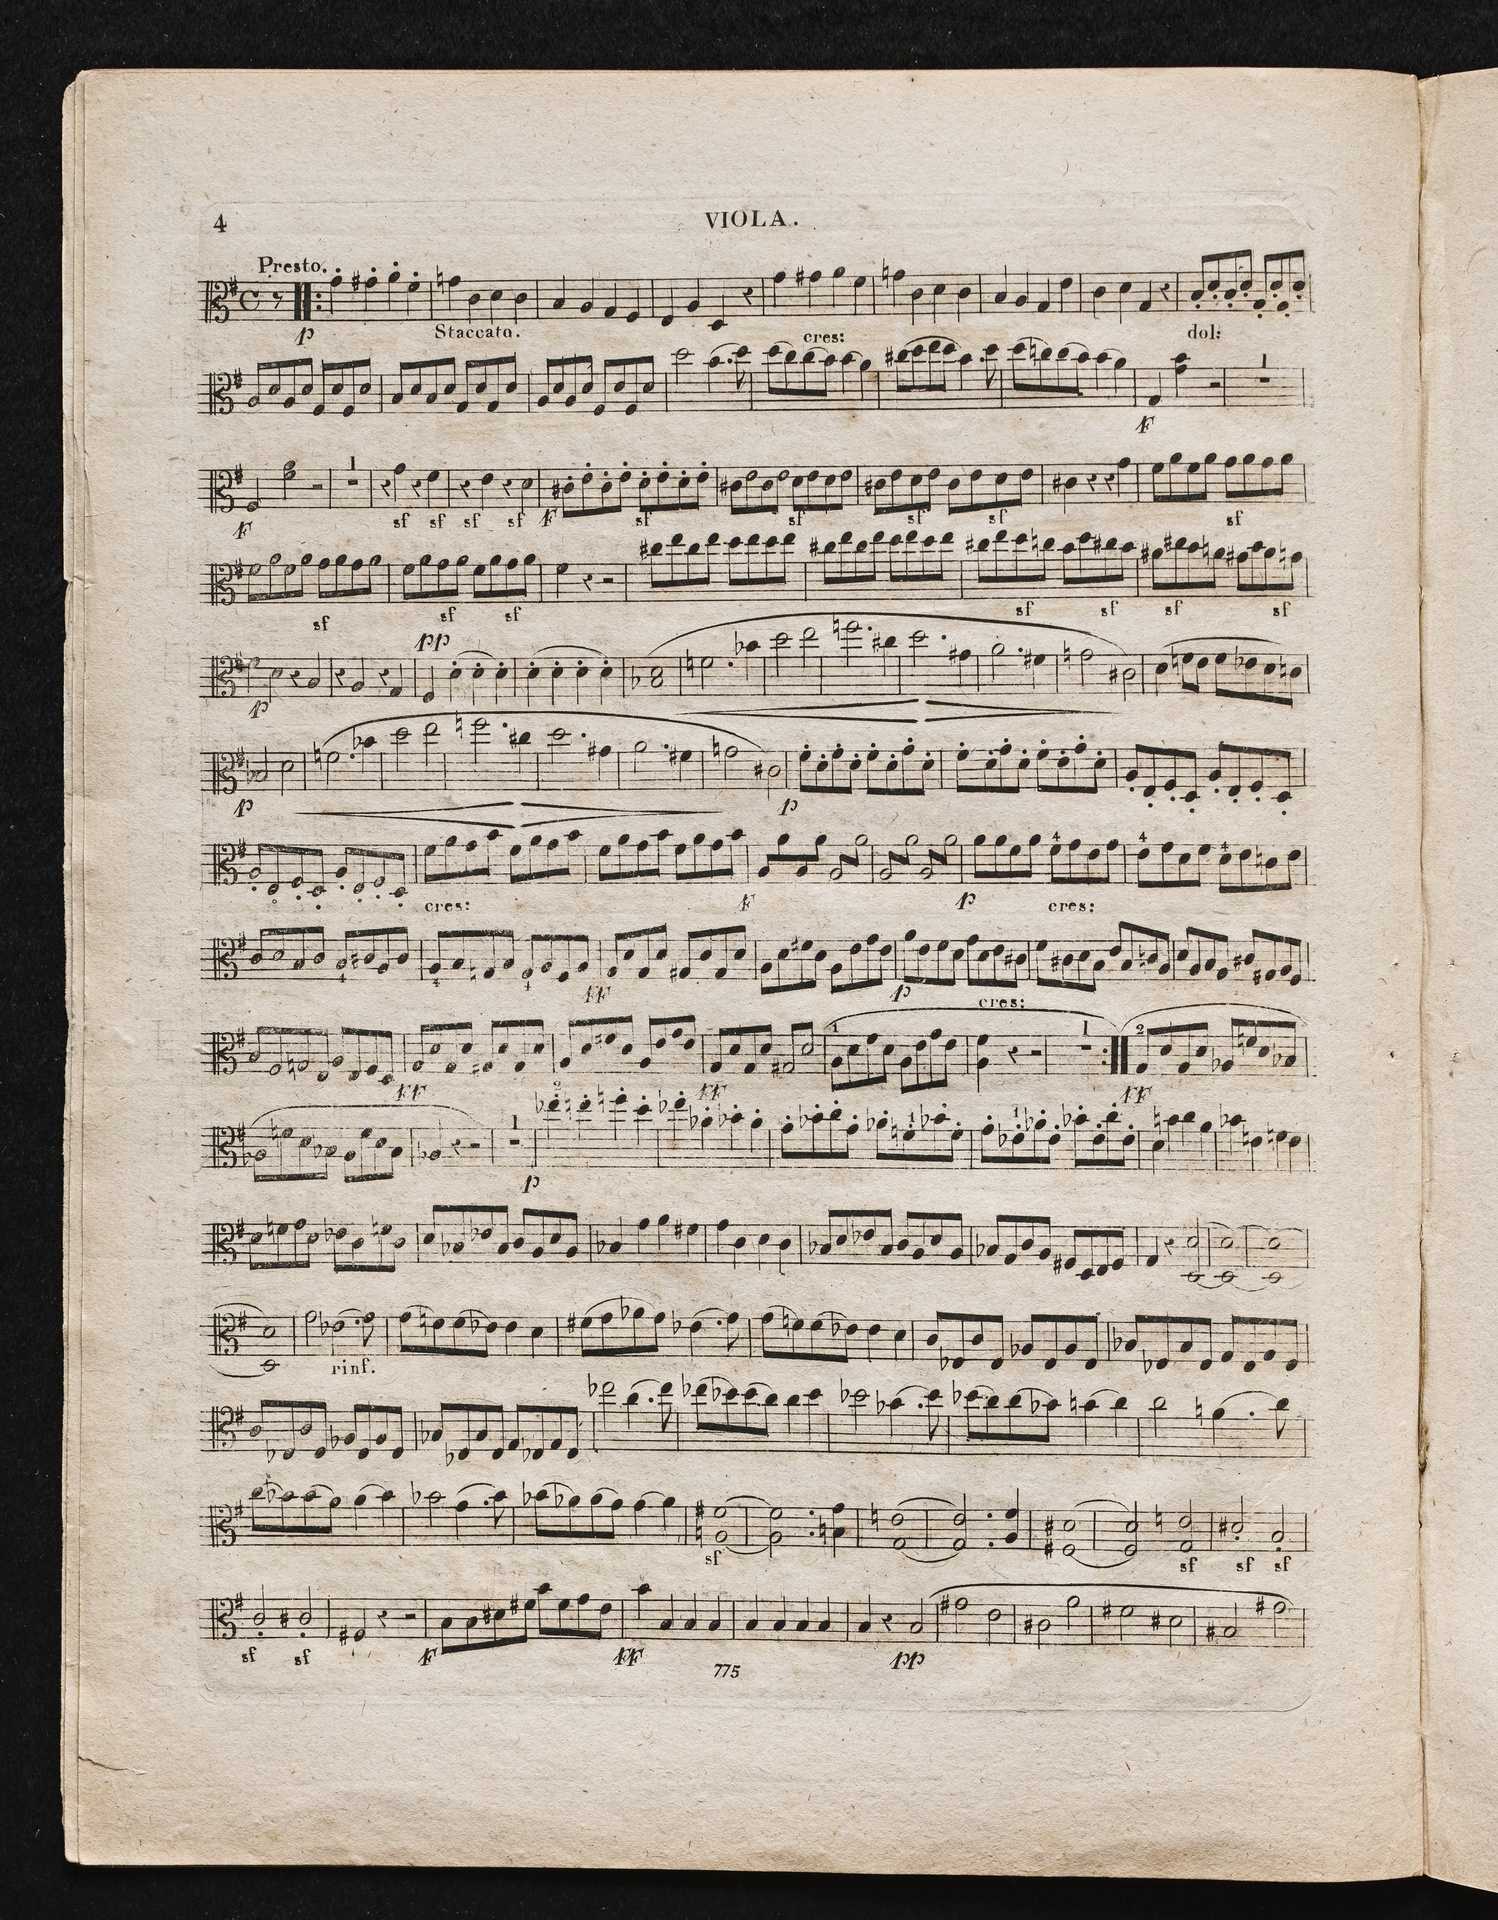 4
VIOLA.
Presto.
p Staccato. cres: dol:
F 1
F 1 sf sf sf sf F sf sf sf sf sf
sf sf sf sf sf sf sf
p pp
p p
cres: F p cres: 4 4 4
4 4 4 FF p cres:
FF FF 1 1 2 FF
1 p 2 1 1
rinf.
sf sf sf sf
sf sf F FF pp
775